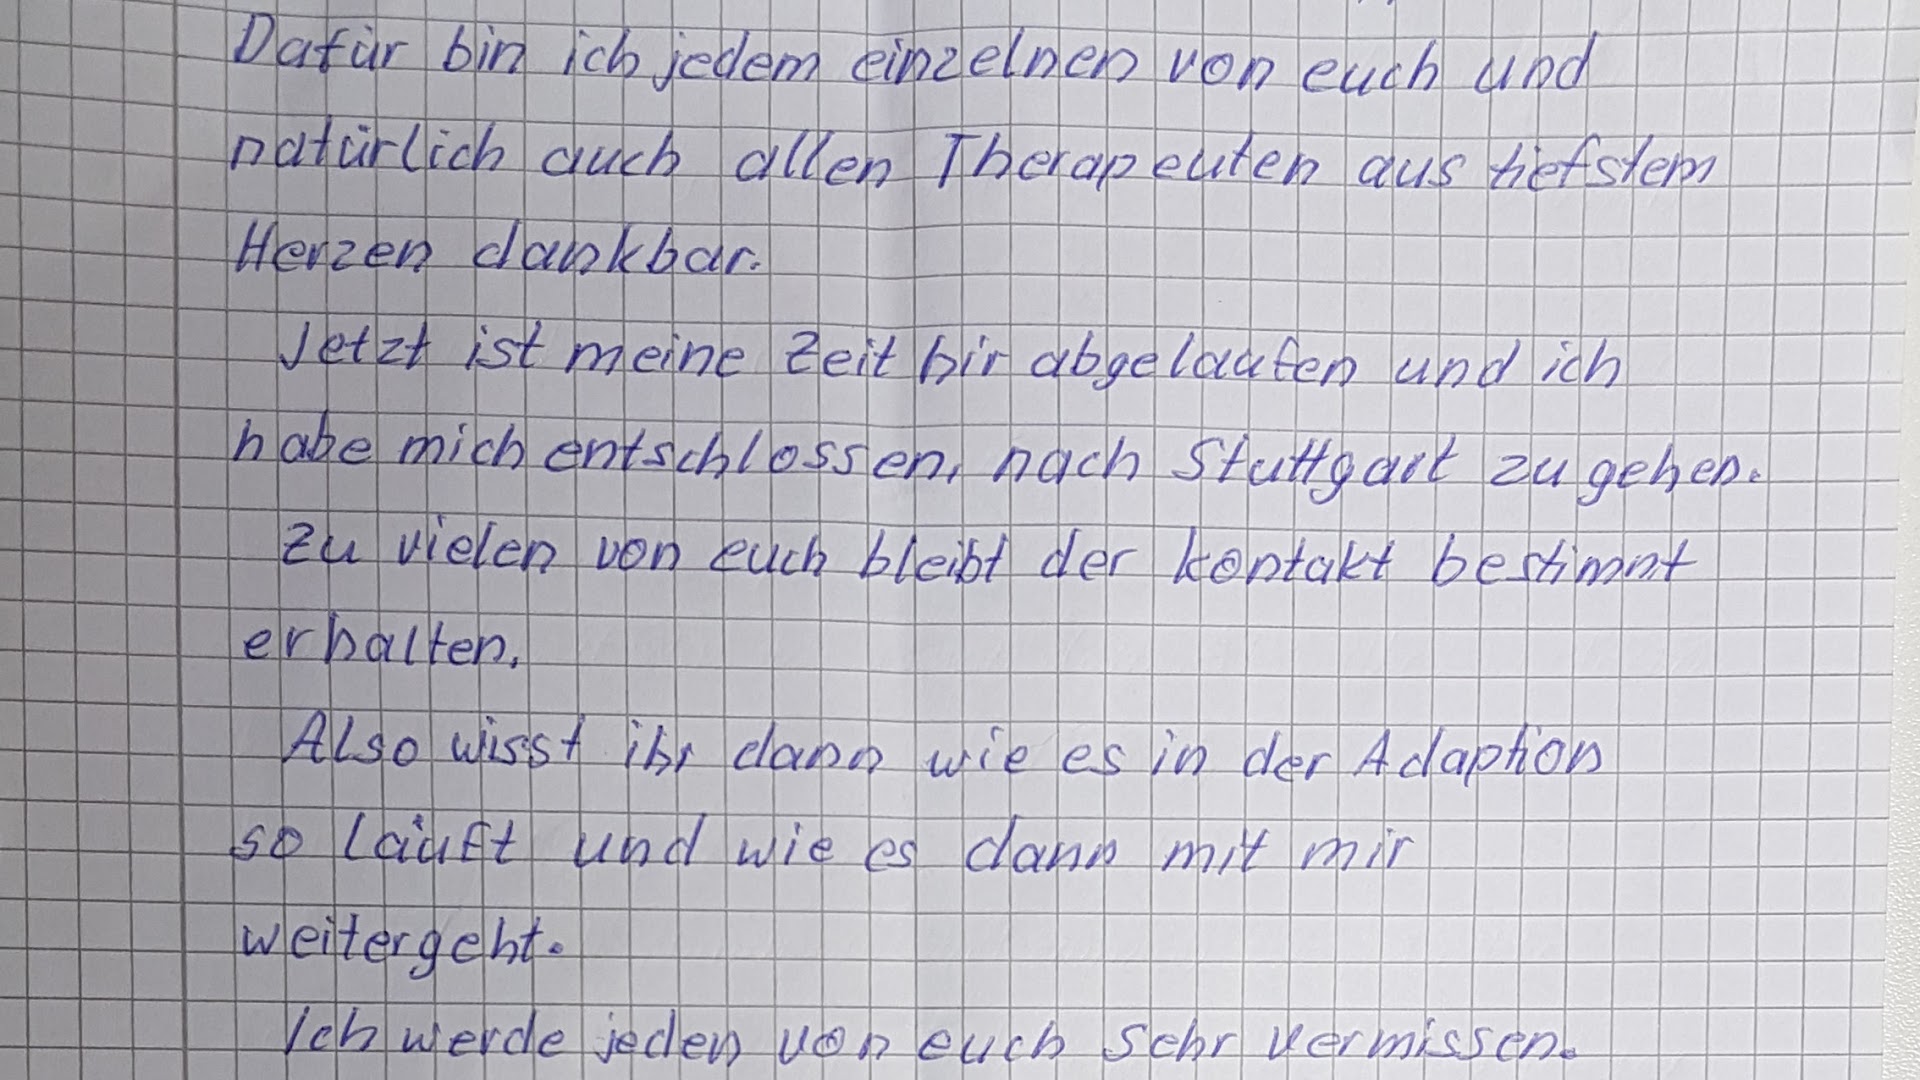 Dafür bin ich jedem einzelnen von euch und
natürlich auch allen Therapeuten aus tiefstem
Herzen dankbar.
Jetzt ist meine Zeit hir abgelaufen und ich
habe mich entschlossen, nach Stuttgart zu gehen.
Zu vielen von euch bleibt der Kontakt bestimmt
erhalten.
Also wisst ihr dann wie es in der Adaption
so läuft und wie es dann mit mir
weitergeht.
Ich werde jeden von euch sehr vermissen.